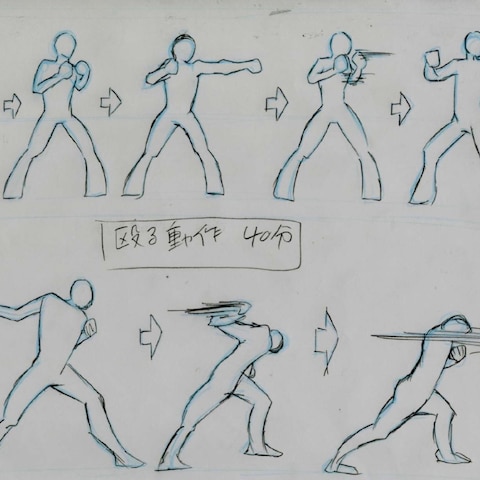 殴る動作 40分